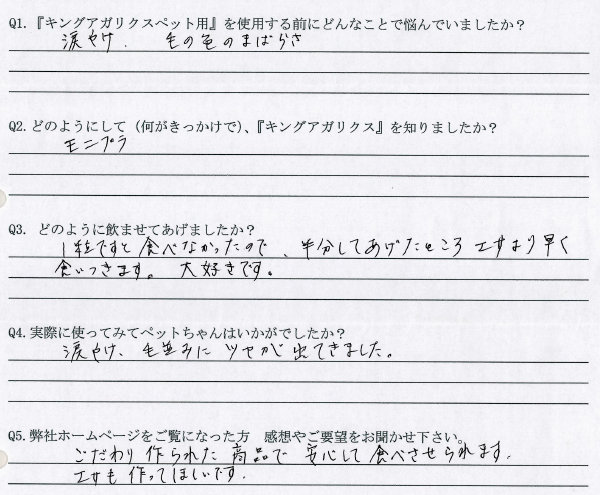 Q1. 『キングアガリクスペット用』を使用する前にどんなことで悩んでいましたか？
涙やけ、 毛の色のまばらさ
Q2. どのようにして（何がきっかけで）、『キングアガリクス』を知りましたか？
モニプラ
Q3. どのように飲ませてあげましたか？
1粒ですと食べなかったので、半分してあげたところ エサより早く
食いつきます。 大好きです。
Q4. 実際に使ってみてペットちゃんはいかがでしたか？
涙やけ、毛並みに ツヤが 出てきました。
Q5. 弊社ホームページをご覧になった方 感想やご要望をお聞かせ下さい。
こだわり 作られた 商品で 安心して 食べさせられます.
エサも 作ってほしいです.